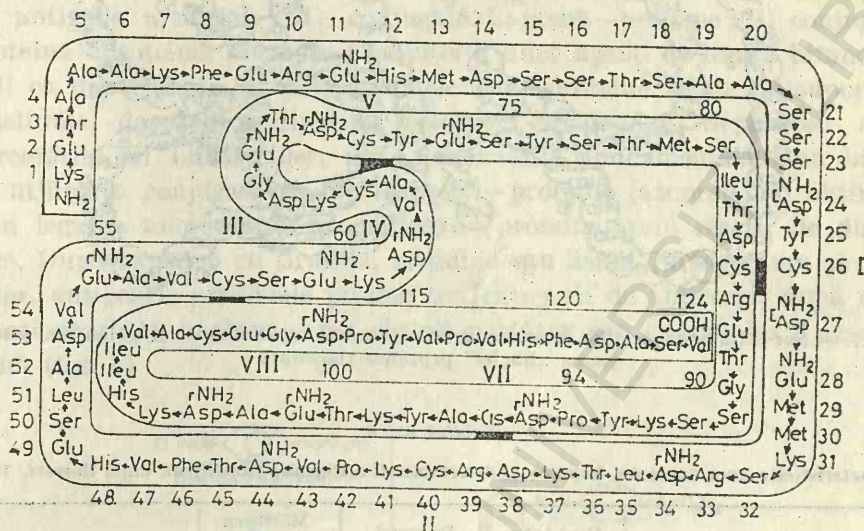 5 6 7 8 9 10 11 12 13 14 15 16 17 18 19 20
NH₂
Ala Ala Lys Phe Glu Arg Glu His Met Asp Ser Ser Thr Ser Ala Ala
4 Ala
3 Thr
2 Glu
1 Lys
NH₂
Ser 21
Ser 22
Ser 23
NH₂
Asp 24
Tyr 25
Cys 26
NH₂
Asp 27
NH₂
Glu 28
Met 29
Met 30
Lys 31
V 75 80
Thr NH₂ NH₂
NH₂ Asp Cys Tyr Glu Ser Tyr Ser Thr Met Ser
Glu
Gly
Asp Lys Cys Ala
Val
NH₂
Asp
Ileu
Thr
Asp
Cys
Arg
Glu
Thr
Gly
Ser
III 60 IV
55
NH₂ NH₂
Glu Ala Val Cys Ser Glu Lys
54 Val
53 Asp
52 Ala
51 Leu
50 Ser
49 Glu
115 120 124
NH₂ COOH
Val Ala Cys Glu Gly Asp Pro Tyr Val Pro Val His Phe Asp Ala Ser Val
Ileu
Ileu
His
VIII 100 VII 94 90
NH₂ NH₂ NH₂
Lys Asp Ala Glu Thr Lys Tyr Ala Cis Asp Pro Tyr Lys Ser
NH₂ NH₂
His Val Phe Thr Asp Val Pro Lys Cys Arg Asp Lys Thr Leu Asp Arg Ser
48 47 46 45 44 43 42 41 40 39 38 37 36 35 34 33 32
II